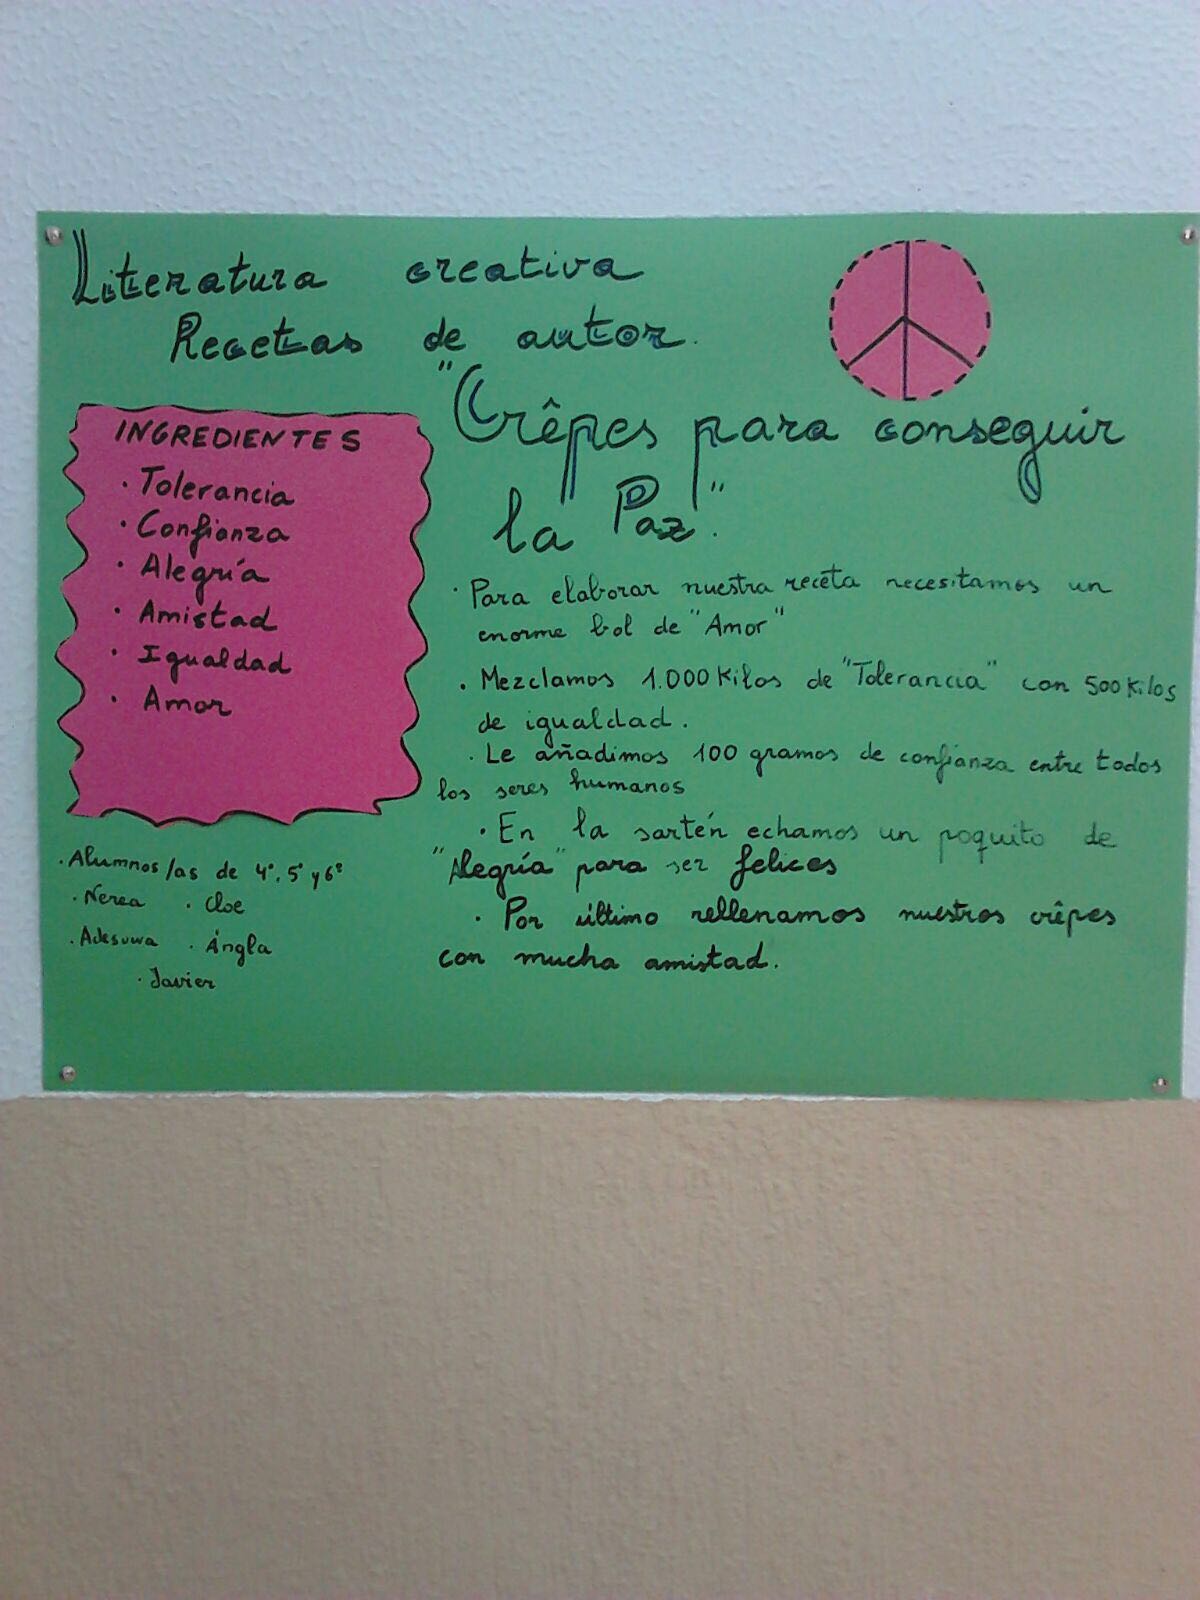 Literatura creativa
Recetas de autor.
"Crêpes para conseguir
la Paz".
INGREDIENTES
· Tolerancia
· Confianza
· Alegría
· Amistad
· Igualdad
· Amor
· Para elaborar nuestra receta necesitamos un
enorme bol de "Amor"
· Mezclamos 1.000 Kilos de "Tolerancia" con 500 Kilos
de igualdad.
· Le añadimos 100 gramos de confianza entre todos
los seres humanos
· En la sartén echamos un poquito de
"Alegría" para ser felices
· Por último rellenamos nuestros crêpes
con mucha amistad.
· Alumnos/as de 4º, 5º y 6º
· Nerea · Cloe
· Adesuwa · Ángla
· Javier